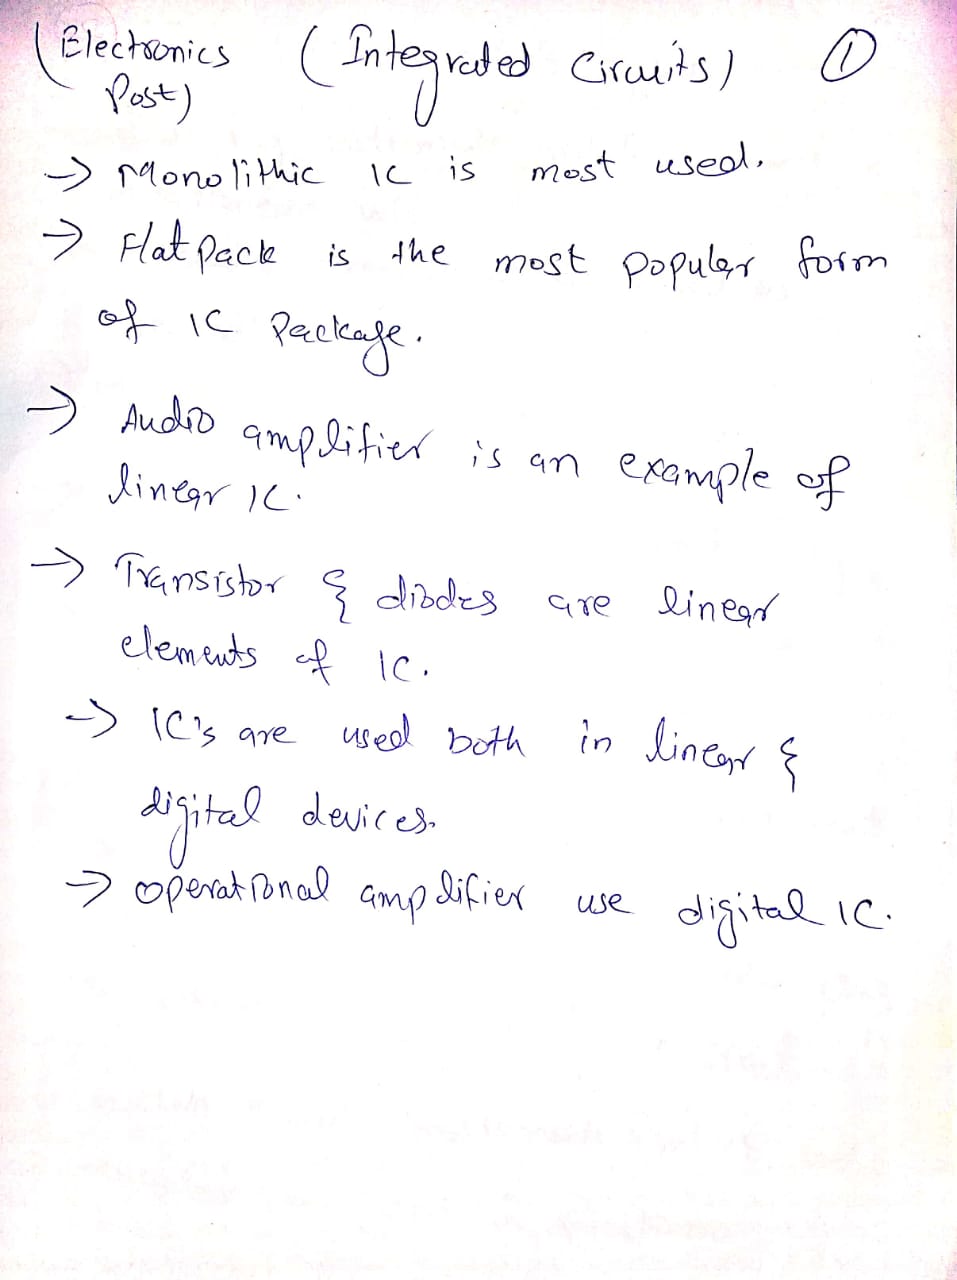 (Electronics Post) (Integrated Circuits) 1
→ Monolithic IC is most used.
→ Flat pack is the most popular form
of IC Package.
→ Audio amplifier is an example of
linear IC.
→ Transistor & diodes are linear
elements of IC.
→ IC's are used both in linear &
digital devices.
→ operational amplifier use digital IC.